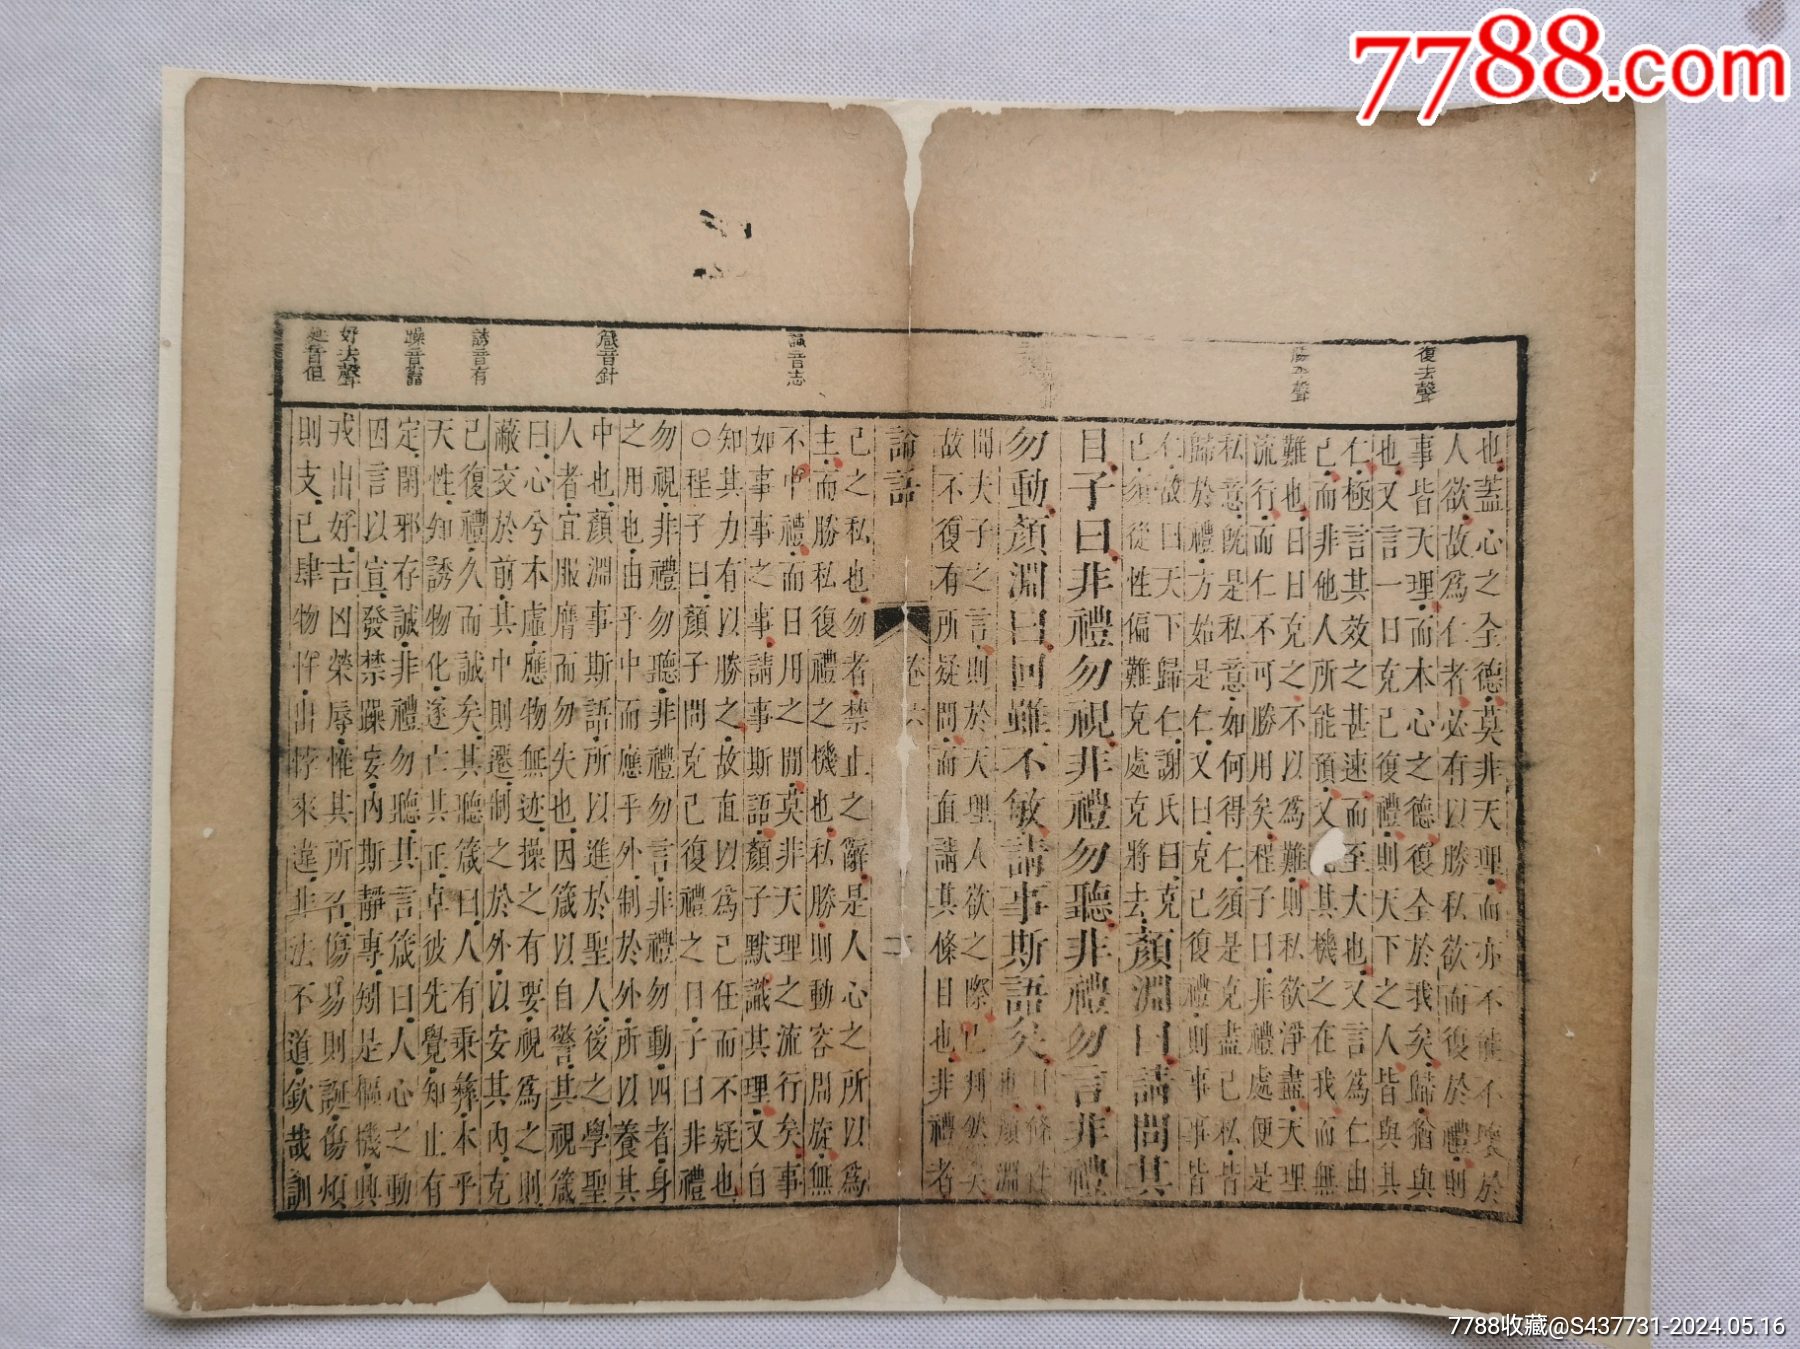 7788.com
復去聲
勝平聲
識音志
箴音針
誘音有
躁音譟
好去聲
誕音但
也蓋心之全德莫非天理而亦不能不壞於
人欲故為仁者必有以勝私欲而復於禮則
事皆天理而本心之德復全於我矣歸猶與
也又言一日克己復禮則天下之人皆與其
仁極言其效之甚速而至大也又言為仁由
己而非他人所能預又其機之在我而無
難也日日克之不以為難則私欲淨盡天理
流行而仁不可勝用矣程子曰非禮處便是
私意既是私意如何得仁須是克盡己私皆
歸於禮方始是仁又曰克己復禮則事事皆
仁故曰天下歸仁謝氏曰克
己須從性偏難克處克將去
顏淵曰請問其
目子曰非禮勿視非禮勿聽非禮勿言非禮
勿動顏淵曰回雖不敏請事斯語矣
目條件
也顏淵
聞夫子之言則於天理人欲之際已判然矣
故不復有所疑問而直請其條目也非禮者
論語 卷六 二
己之私也勿者禁止之辭是人心之所以為
主而勝私復禮之機也私勝則動容周旋無
不中禮而日用之間莫非天理之流行矣事
如事事之事請事斯語顏子默識其理又自
知其力有以勝之故直以為己任而不疑也
○程子曰顏子問克己復禮之目子曰非禮
勿視非禮勿聽非禮勿言非禮勿動四者身
之用也由乎中而應乎外制於外所以養其
中也顏淵事斯語所以進於聖人後之學聖
人者宜服膺而勿失也因箴以自警其視箴
曰心兮本虛應物無迹操之有要視為之則
蔽交於前其中則遷制之於外以安其內克
己復禮久而誠矣其聽箴曰人有秉彝本乎
天性知誘物化遂亡其正卓彼先覺知止有
定閑邪存誠非禮勿聽其言箴曰人心之動
因言以宣發禁躁妄內斯靜專矧是樞機興
戎出好吉凶榮辱惟其所召傷易則誕傷煩
則支己肆物忤出悖來違非法不道欽哉訓
7788收藏@S437731-2024.05.16